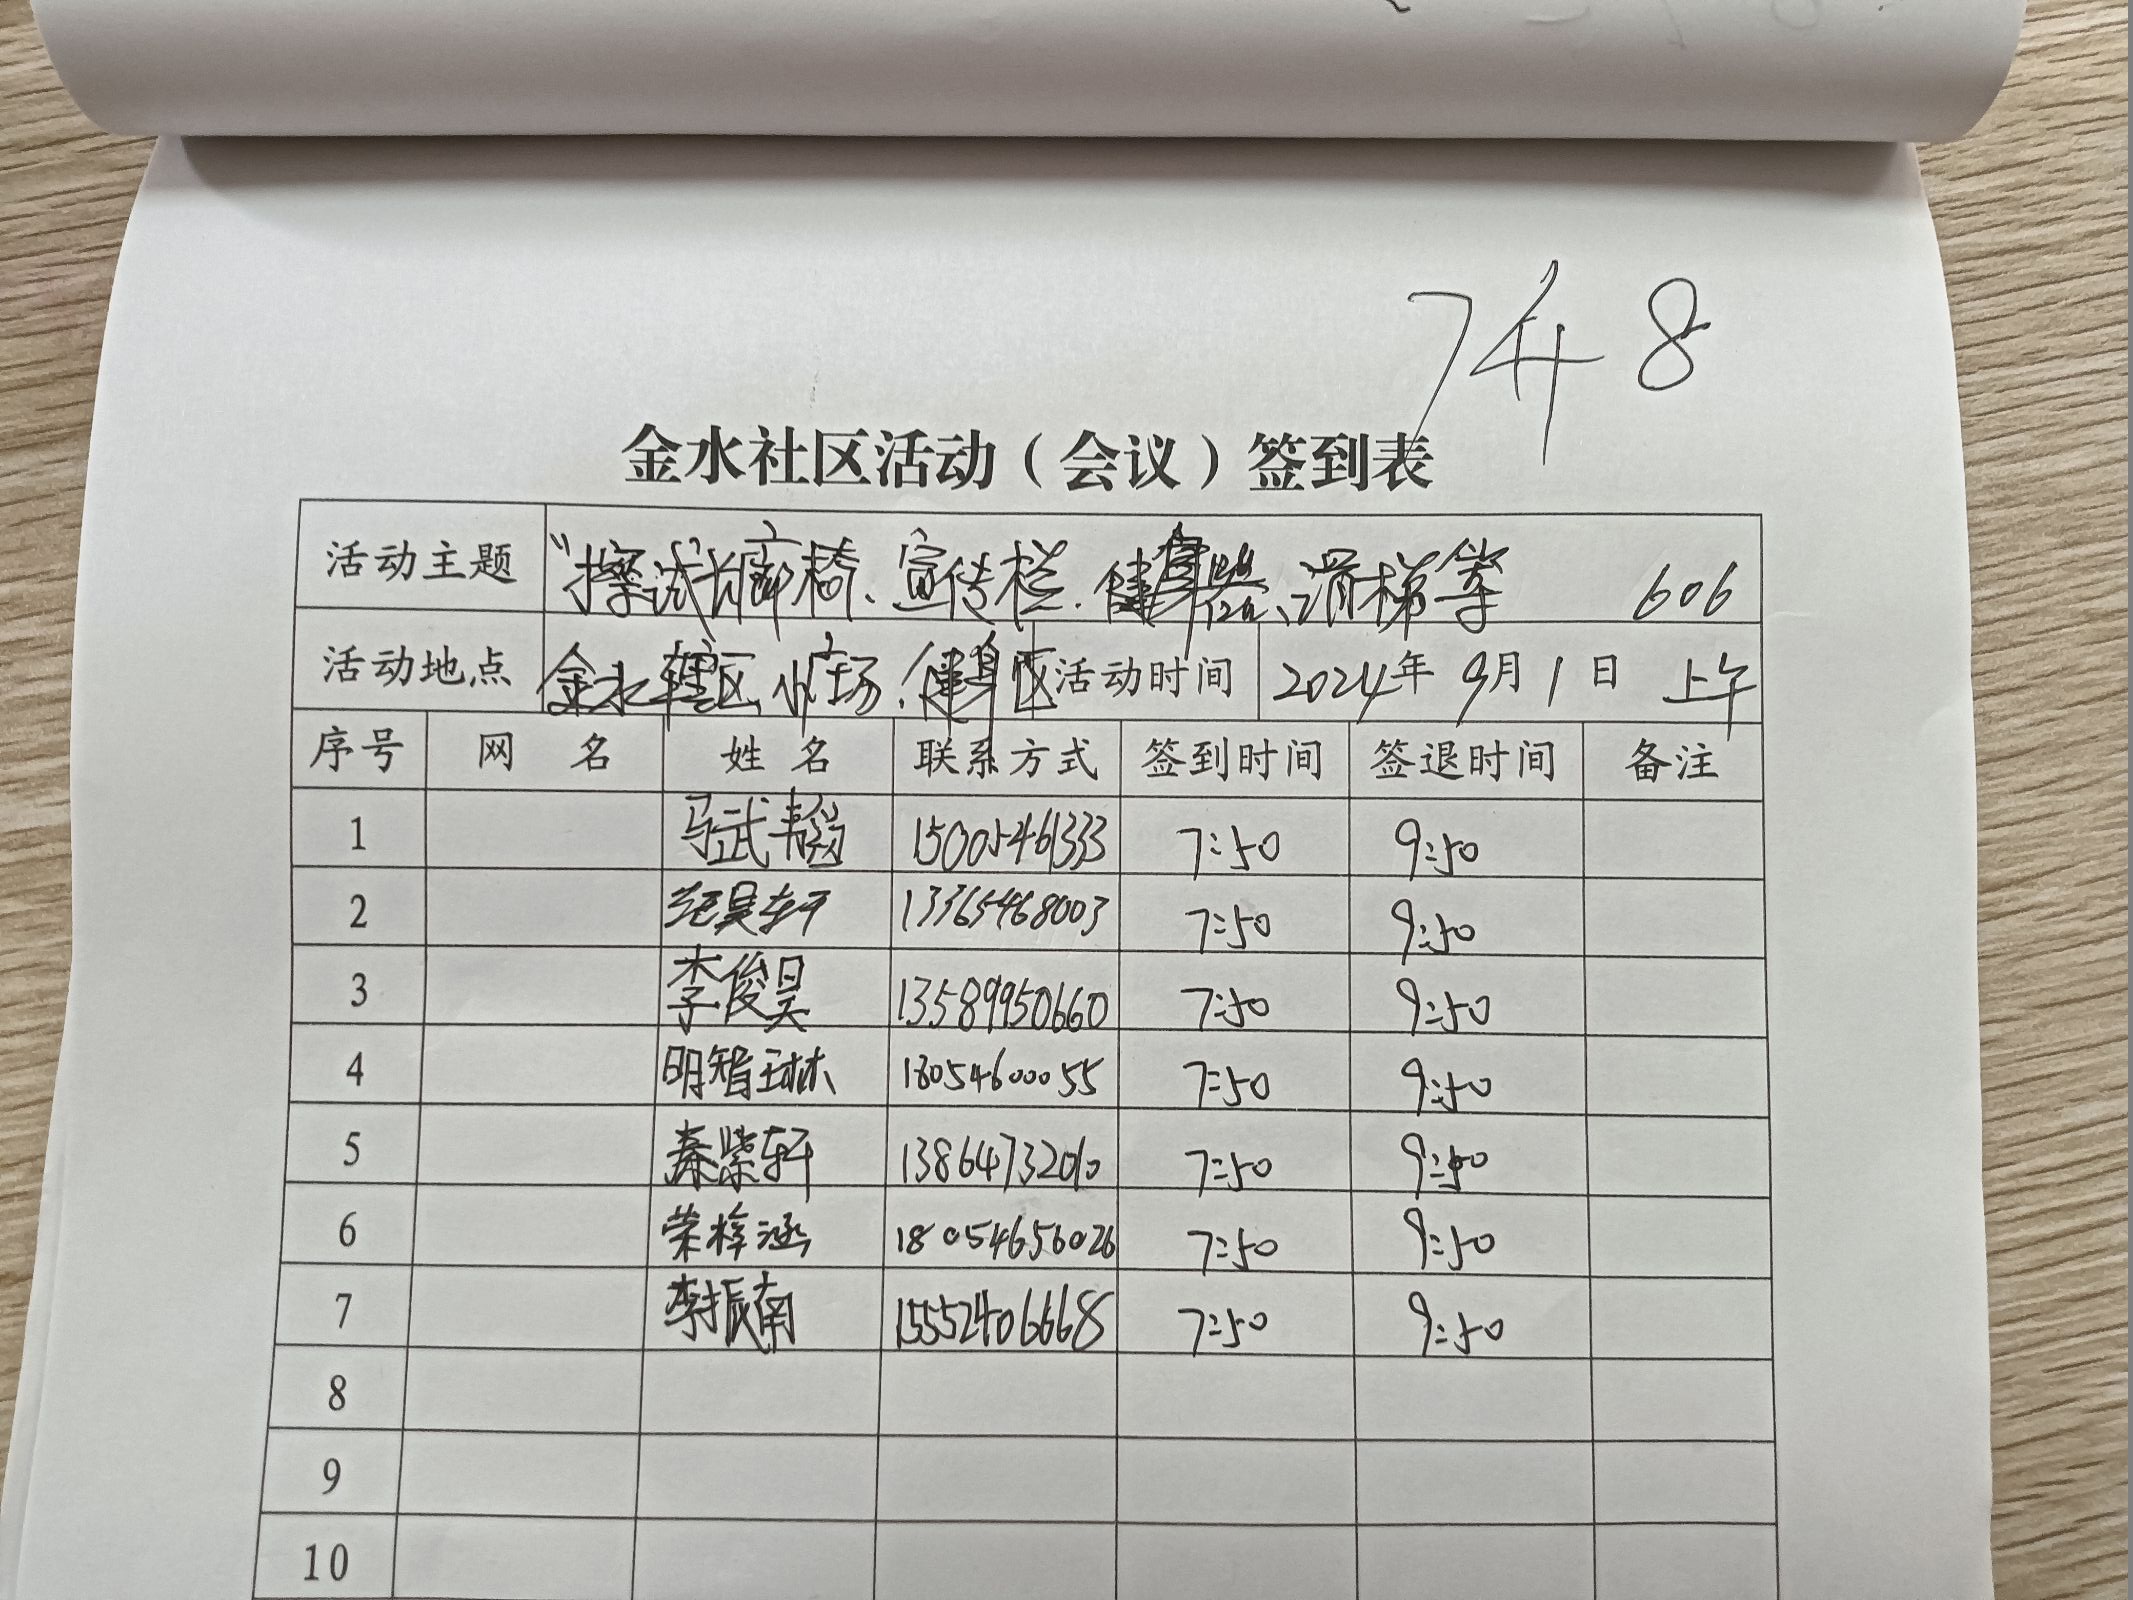 748
金水社区活动（会议）签到表
活动主题 "擦试长廊椅、宣传栏、健身器、滑梯等 606
活动地点 金水辖区小广场、健身区 活动时间 2024年9月1日 上午
序号 网名 姓名 联系方式 签到时间 签退时间 备注
1 马武韬 15005461333 7:50 9:50
2 纪昊轩 13365468003 7:50 9:50
3 李俊昊 13589950660 7:50 9:50
4 明智琳 18054600055 7:50 9:50
5 秦紫轩 13864732010 7:50 9:50
6 荣梓涵 18054656026 7:50 9:50
7 李振南 15552406668 7:50 9:50
8
9
10